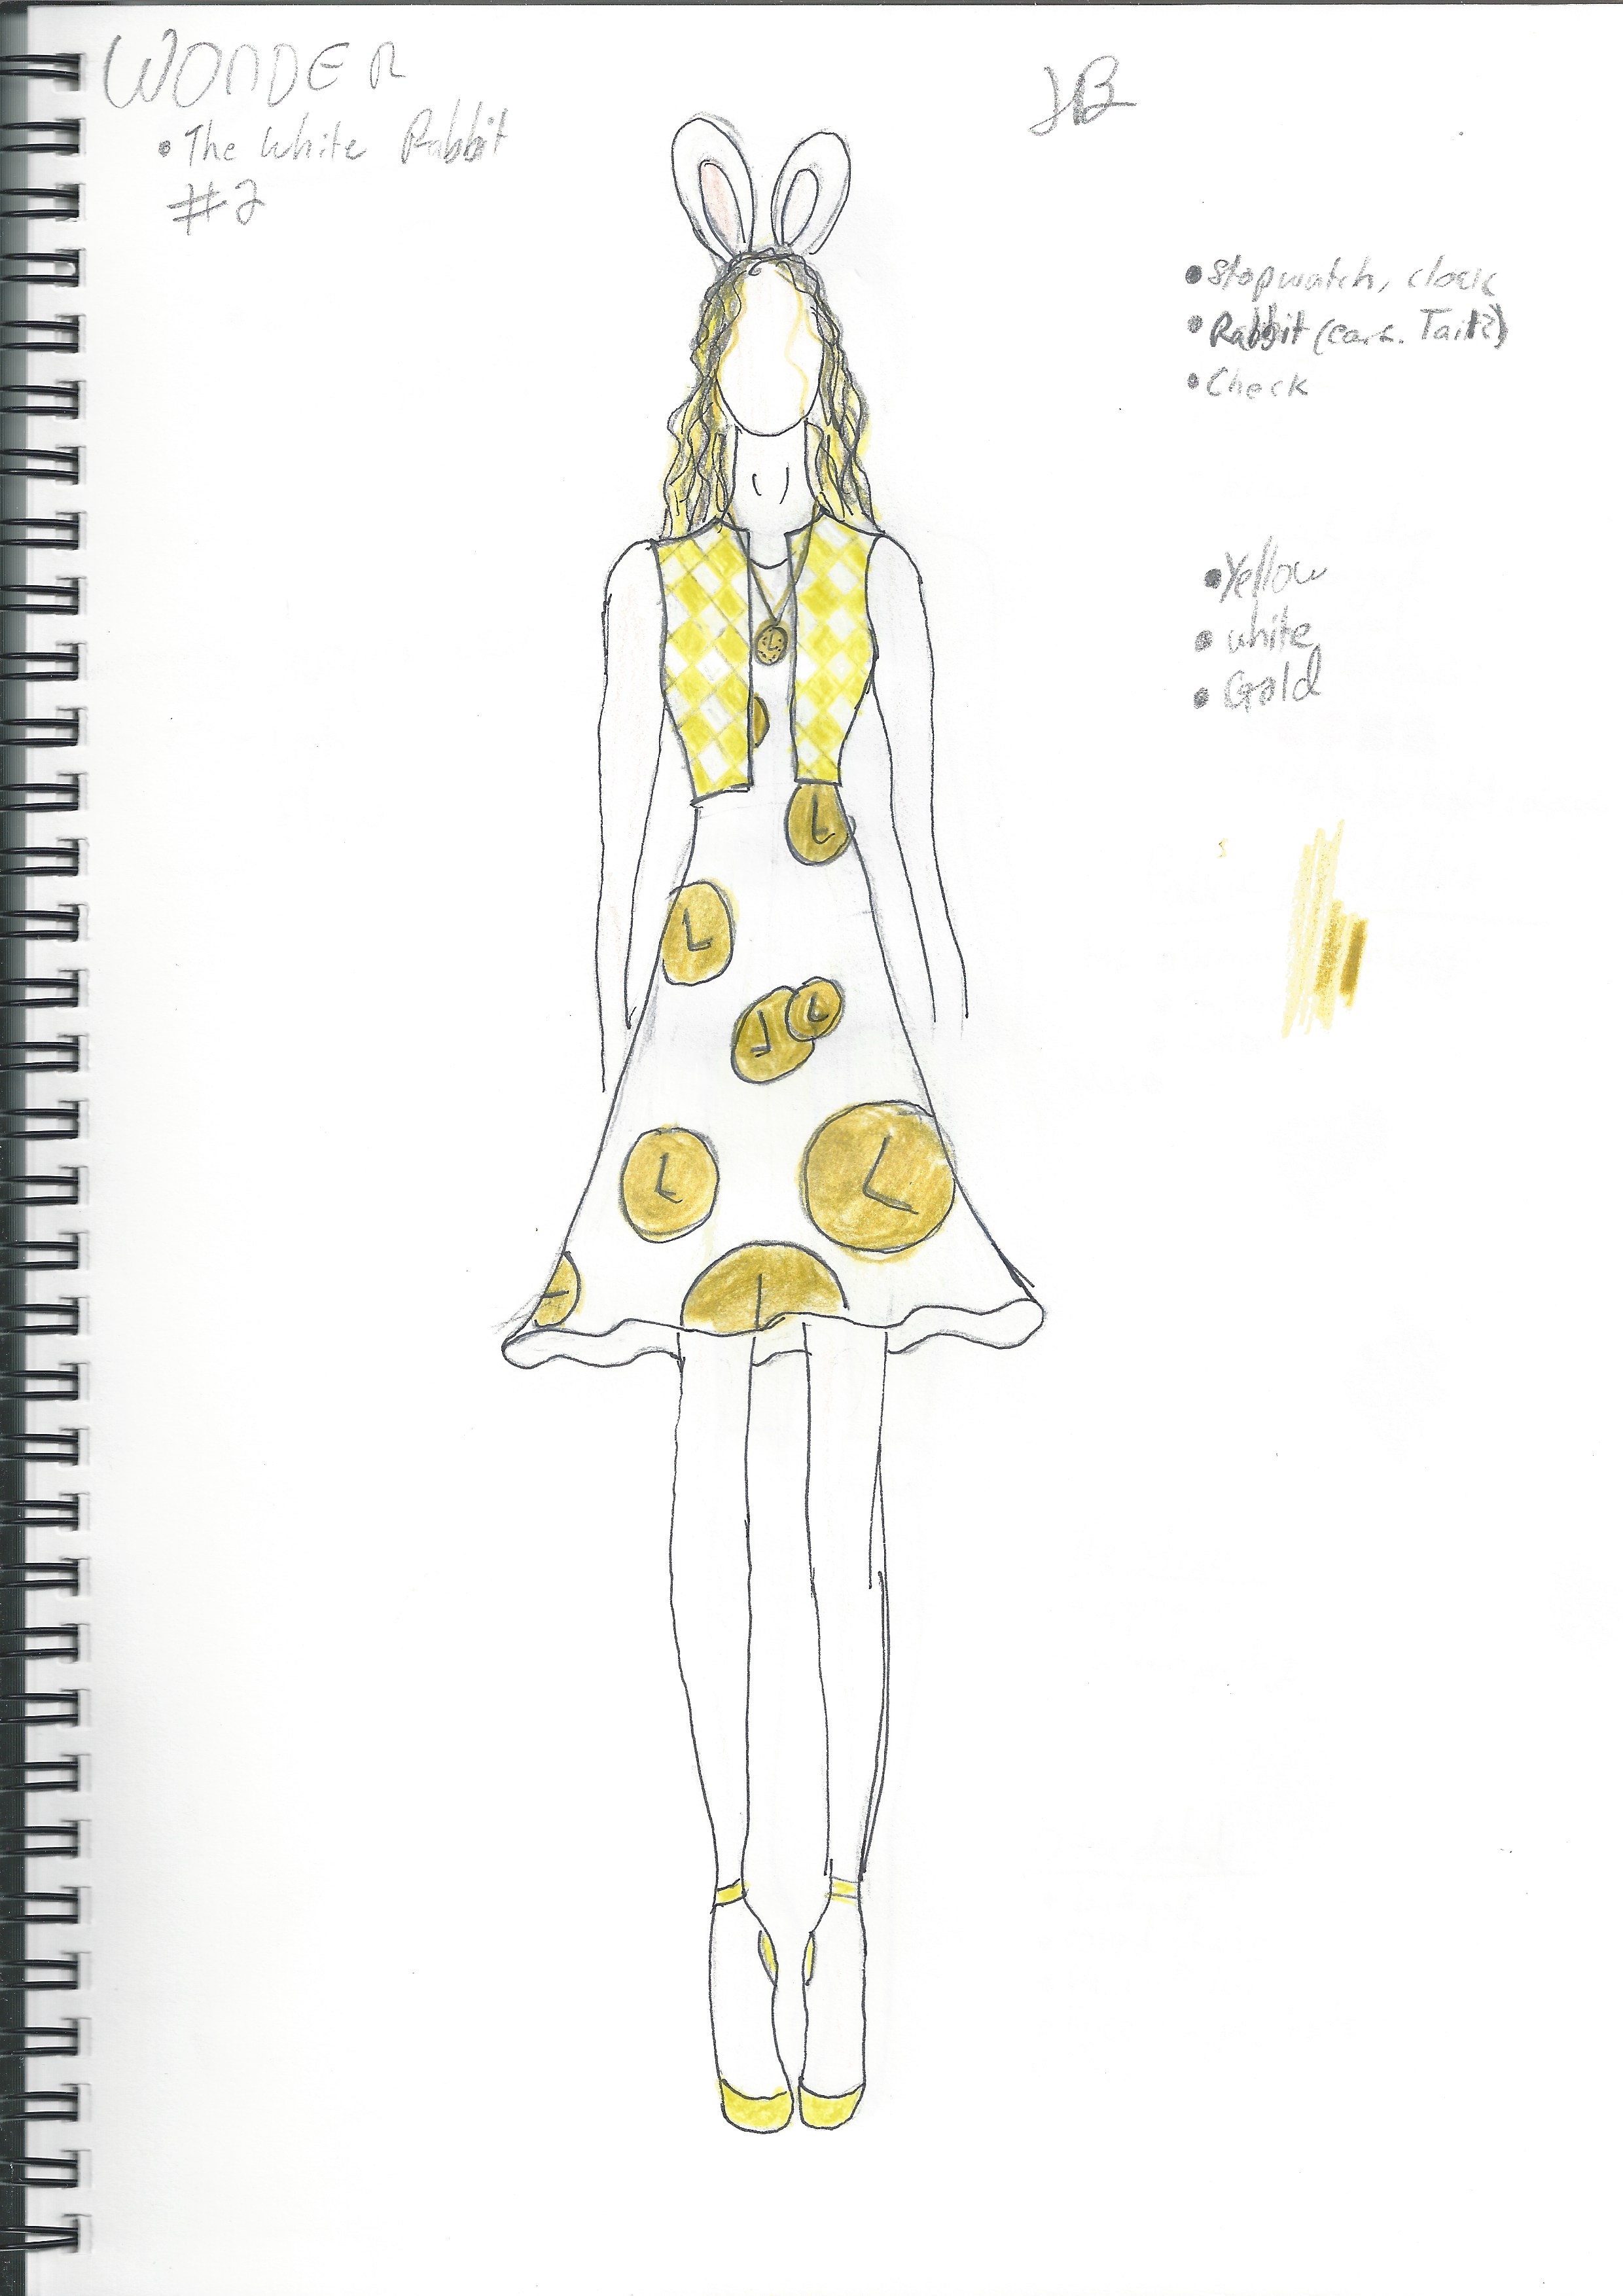 WONDER
• The White Rabbit
#2
JB
• Stopwatch, clock
• Rabbit (ears. Tail?)
• Check
• Yellow
• white
• Gold